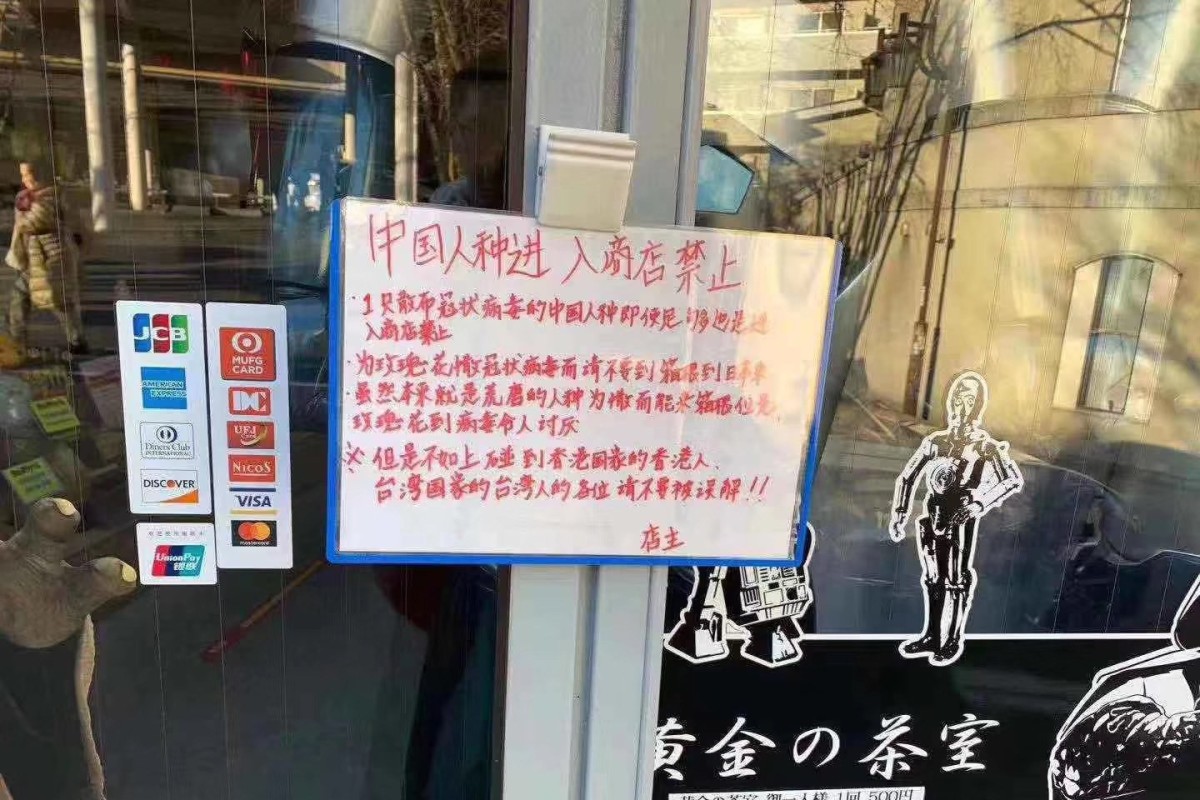 中国人种进入商店禁止
·1只散布冠状病毒的中国人种即使是够也是进
入商店禁止
·为玫瑰花憎冠状病毒而请不要到箱根到日本来
·虽然本来就是荒磨的人种为憎而能来箱根但是
玫瑰花到病毒令人讨厌
※但是不如上碰到香港国家的香港人、
台湾国家的台湾人的各位请不要被误解!!
店主
JCB
AMERICAN EXPRESS
Diners Club
INTERNATIONAL
DISCOVER
UnionPay
银联
MUFG
CARD
DC
UFJ Card
NICOS
VISA
mastercard
黄金の茶室
黄金の茶室 御一人様 1回 500円